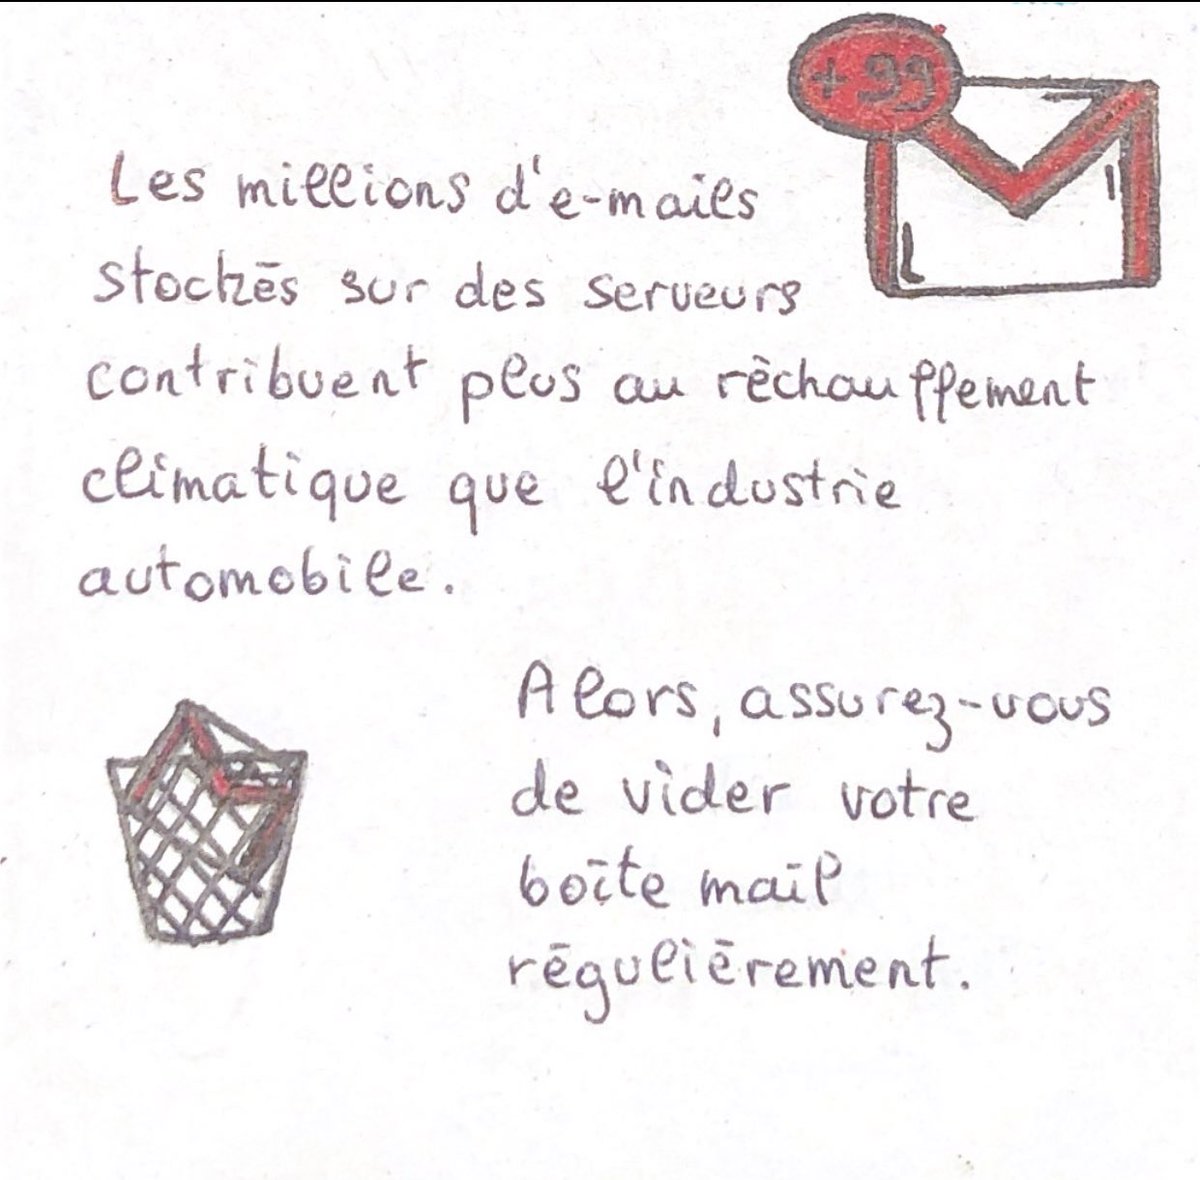 +99
Les millions d'e-mails
stockés sur des serveurs
contribuent plus au réchauffement
climatique que l'industrie
automobile.
Alors, assurez-vous
de vider votre
boîte mail
régulièrement.